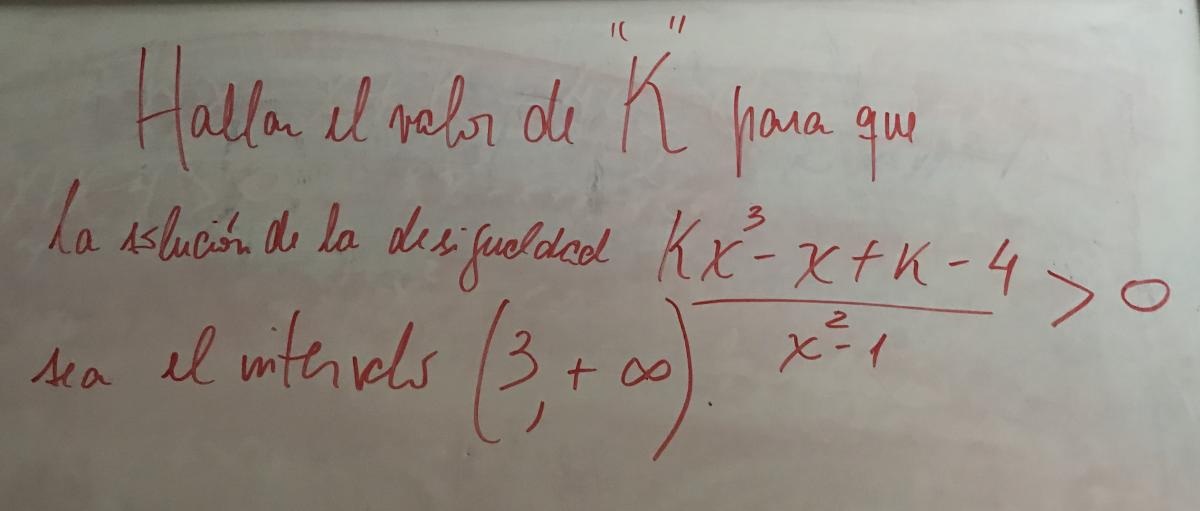 Hallar el valor de "K" para que
la solución de la desigualdad Kx³ - x + K - 4 / x² - 1 > 0
sea el intervalo (3, + ∞).